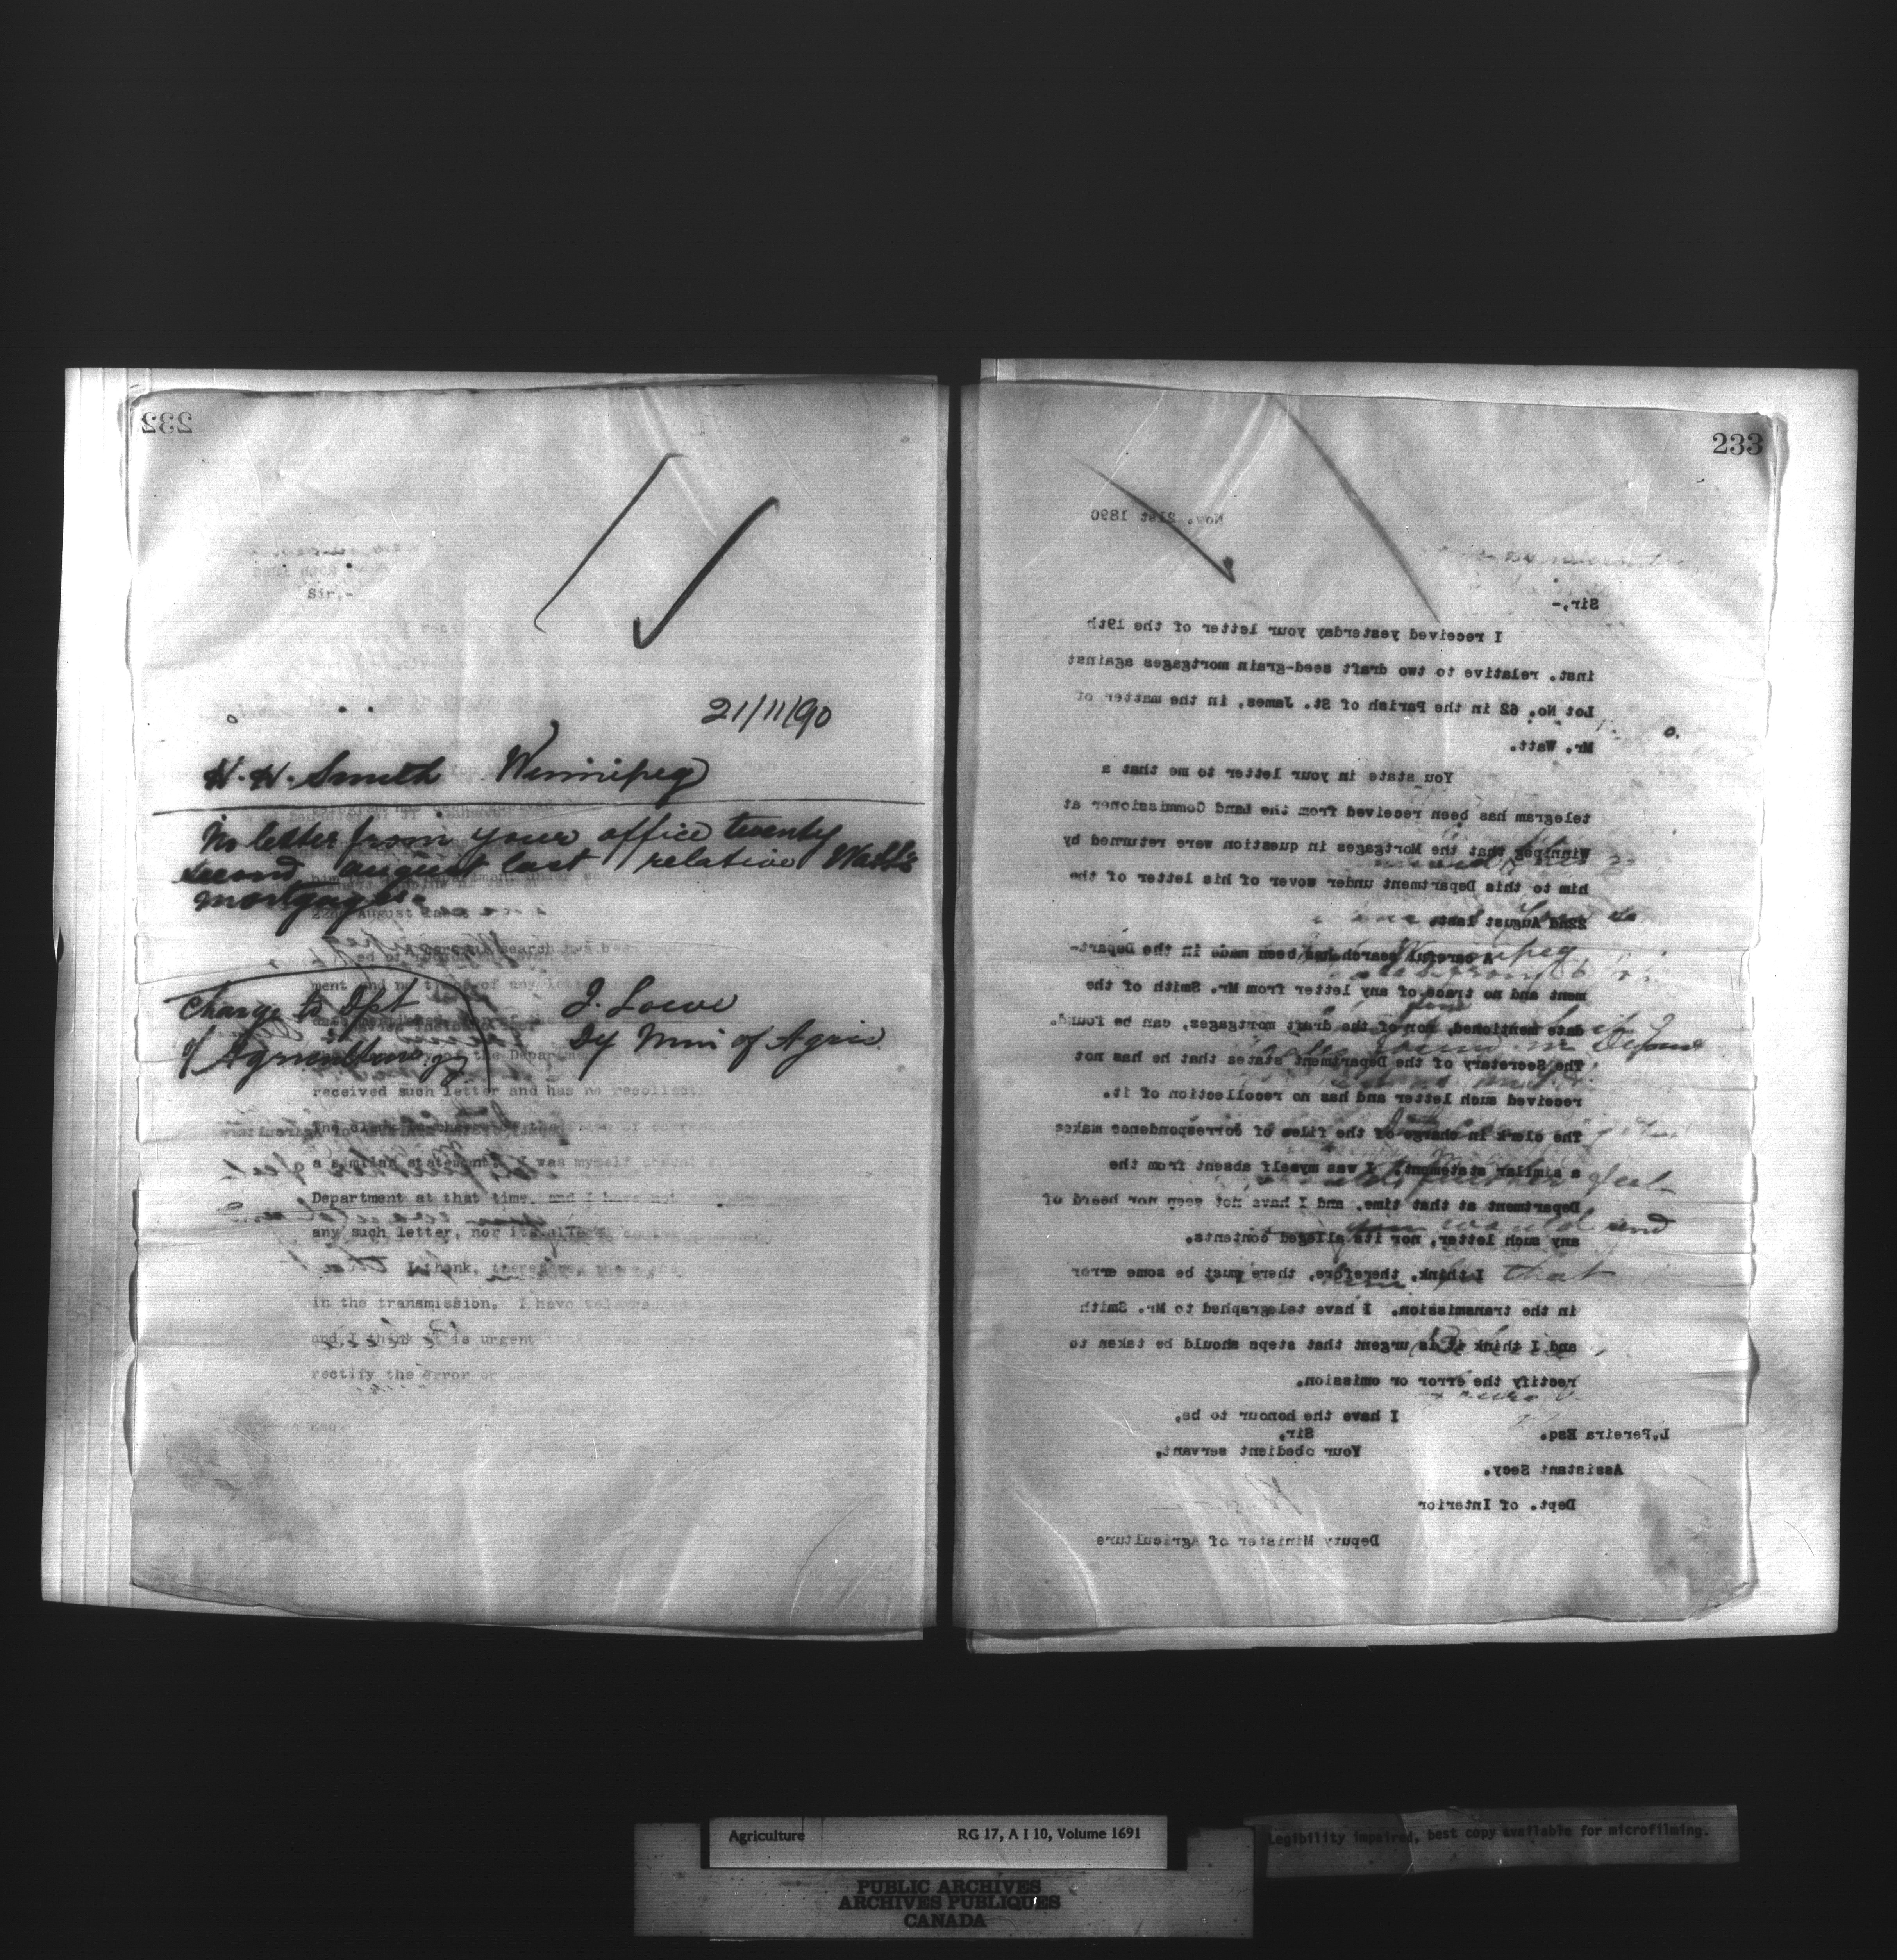 232
21/11/90
H. H. Smith Winnipeg
No letter from your office twenty
second august last relative Watt's
mortgages.
Charge to Dpt
of Agriculture
J. Lowe
Dy Mini of Agric
Sir,-
received such letter and has no
a similar statement. I was myself
Department at that time, and I have not
any such letter, nor its
I think,
in the transmission. I have
and I think it is urgent
rectify the error or
233
Nov. 21st 1890
Sir,-
I received yesterday your letter of the 19th
inst. relative to two draft seed-grain mortgages against
Lot No. 62 in the Parish of St. James, in the matter of
Mr. Watt.
You state in your letter to me that a
telegram has been received from the Land Commissioner at
Winnipeg that the Mortgages in question were returned by
him to this Department under wover of his letter of the
22nd August last.
A careful search has been made in the Depart-
ment and no trace of any letter from Mr. Smith of the
date mentioned, nor of the draft mortgages, can be found.
The Secretary of the Department states that he has not
received such letter and has no recollection of it.
The clerk in charge of the files of correspondence makes
a similar statement. I was myself absent from the
Department at that time, and I have not seen nor heard of
any such letter, nor its alleged contents.
I think, therefore, there must be some error
in the transmission. I have telegraphed to Mr. Smith
and I think it is urgent that steps should be taken to
rectify the error or omission.
I have the honour to be,
Sir,
Your obedient servant,
L. Pereira Esq.
Assistant Secy.
Dept. of Interior
Deputy Minister of Agriculture
Agriculture RG 17, A I 10, Volume 1691
Legibility impaired, best copy available for microfilming.
PUBLIC ARCHIVES
ARCHIVES PUBLIQUES
CANADA